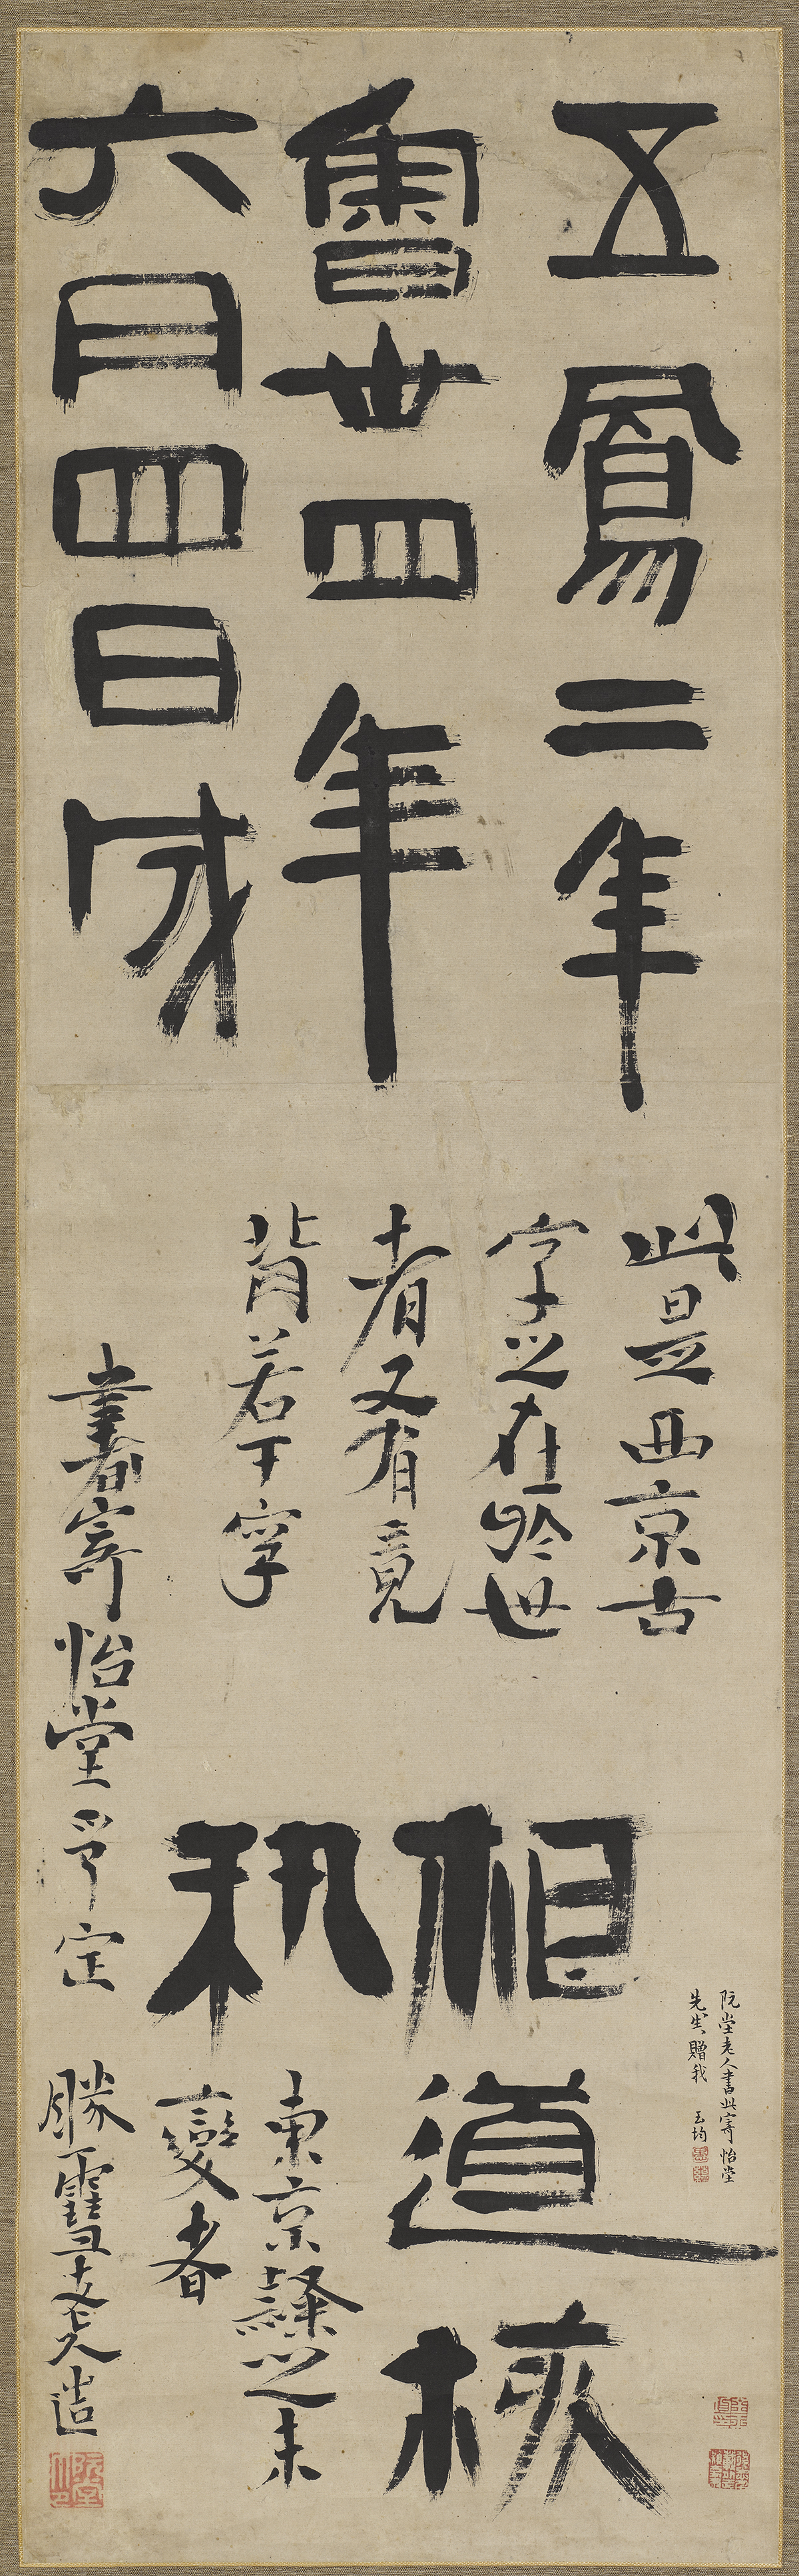 五鳳二年
魯卅四年
六月四日成
此是西京古
字之在於世
者又有竟
背若干字
相道核
東京隸之未
變者
書寄怡堂 定
勝雪老人造
阮堂老人書此寄怡堂
先生贈我 玉均